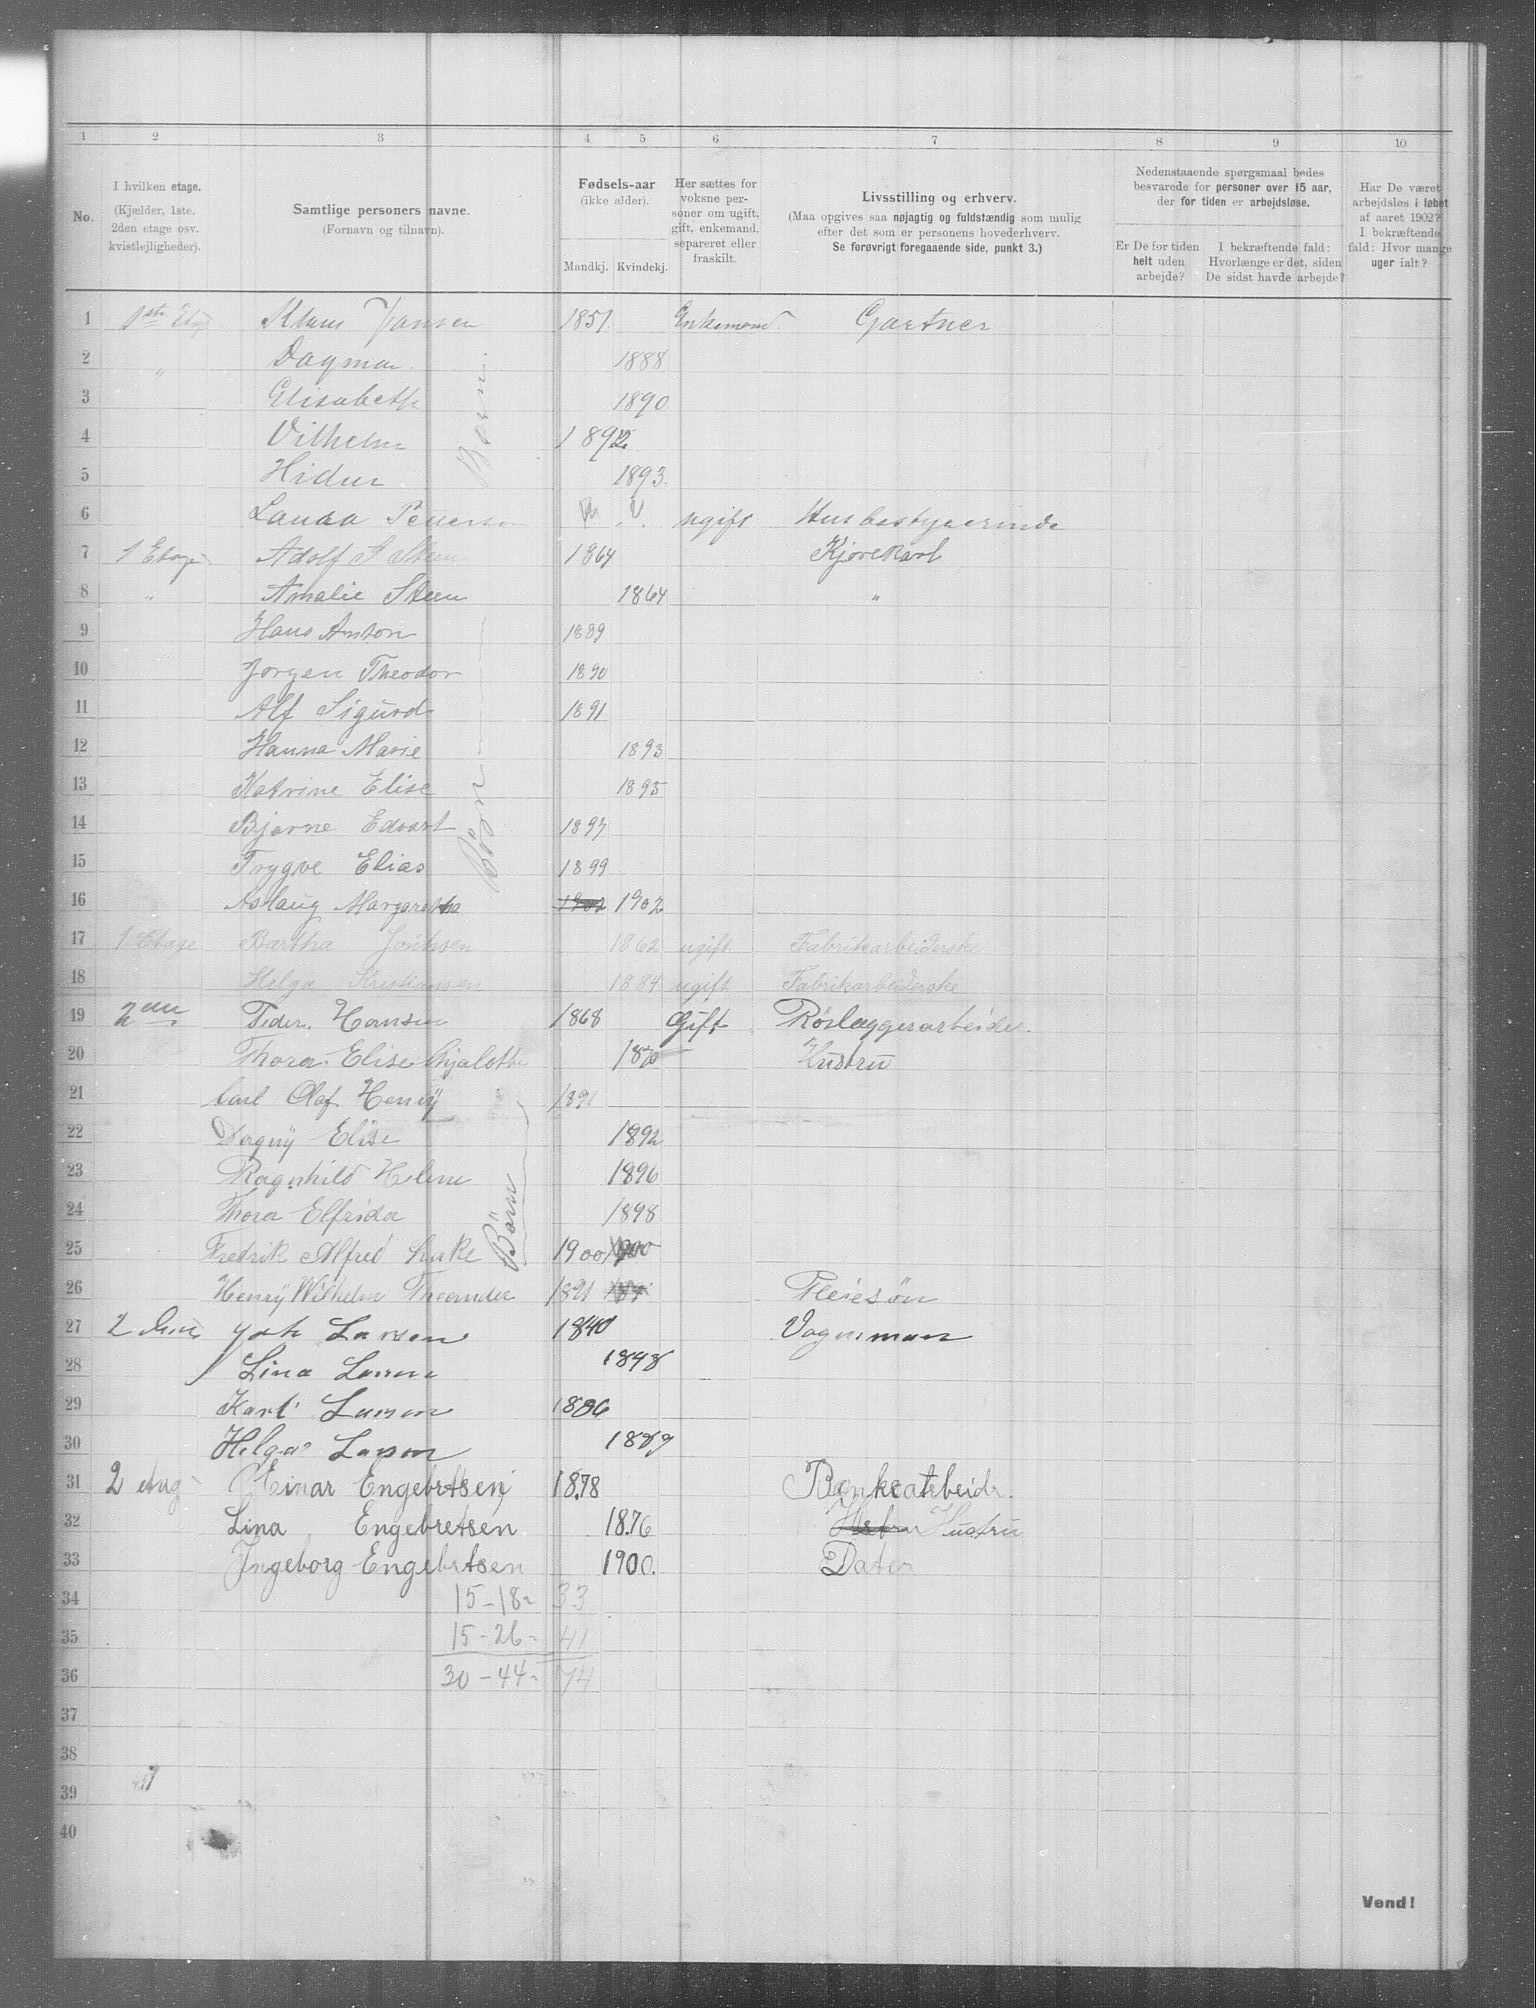 1 2 3 4 5 6 7 8 9 10
No. I hvilken etage. (Kjælder, 1ste, 2den etage osv. kvistlejligheder). Samtlige personers navne. (Fornavn og tilnavn). Fødsels-aar (ikke alder). Mandkj. Kvindekj. Her sættes for voksne personer om ugift, gift, enkemand, separeret eller fraskilt. Livsstilling og erhverv. (Maa opgives saa nøjagtig og fuldstændig som mulig efter det som er personens hovederhverv. Se forøvrigt foregaaende side, punkt 3.) Nedenstaaende spørgsmaal bedes besvarede for personer over 15 aar, der for tiden er arbejdsløse. Er De for tiden helt uden arbejde? I bekræftende fald: Hvorlænge er det, siden De sidst havde arbejde? Har De været arbejdsløs i løbet af aaret 1902? I bekræftende fald: Hvor mange uger ialt?
1 1ste Etage Klaus Jansen 1851 Enkemand. Gartner
2 " Dagmar 1888
3 Elisabeth 1890
4 Vilhelm 1892
5 1893.
6 Laura ugift Husbestyrerinde
7 1 Etage Adolf S Steen 1864 Kjørekarl
8 " Amalie Steen 1864 "
9 Hans Anton 1889
10 Jørgen Theodor 1890
11 Alf Sigurd 1891
12 Hanna Marie 1893
13 Katrine Elise 1895
14 Bjarne Edvart 1897
15 Trygve Elias 1899
16 Aslaug Margaretha 1902 1902
Børn
17 1 Etage Bartha 1862 ugift Fabrikarbeiderske
18 Helga Kristiansen 1884 ugift Fabrikarbeiderske
19 2den Peder Hansen 1868 Gift Rörlæggerarbeider.
20 Thora Elise 1870 Hustru
21 Carl Olaf Henrÿ
22 Dagnÿ Elise 1892
23 Ragnhild Helene 1896
24 Thora Elfrida 1898
25 Fredrik Alfred 1900
26 Henrÿ Wilhelm 1891 Pleiesøn
Børn
27 2 Larsen 1840 Vognman
28 Lina Larsen 1848
29 Karl Larsen 1886
30 Helga Larson 1889
31 2 etag Einar Engebretsen 1878
32 Lina Engebretsen 1876 Hustru
33 Ingeborg Engebretsen 1900. Dater
34 15-18= 33
35 15-26= 41
36 30-44= 74
37
38
39
40
Vend!